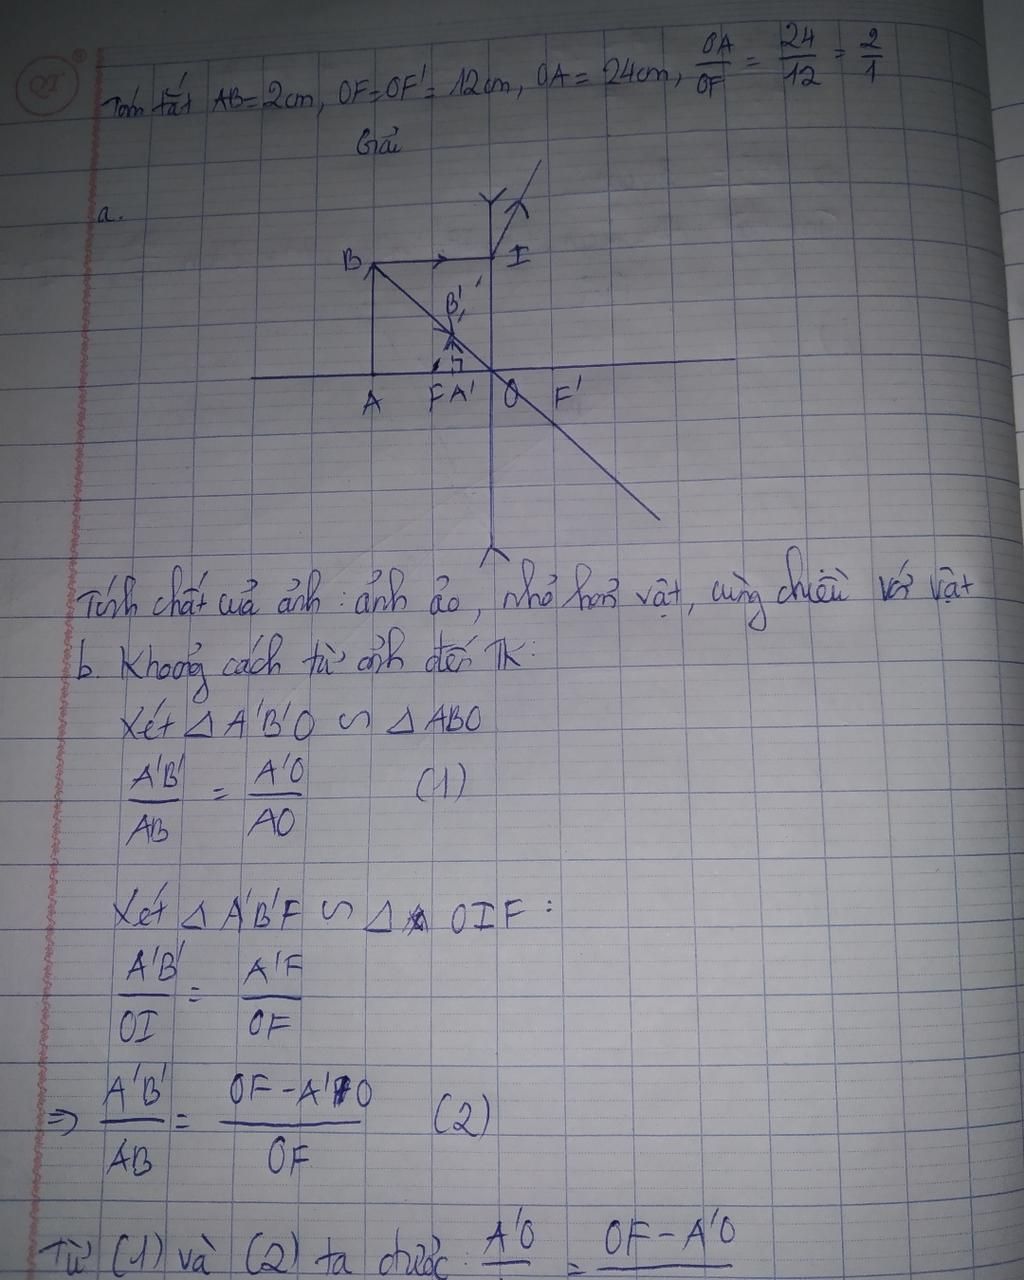 Tóm tắt AB = 2cm, OF = OF' = 12cm, OA = 24cm, OA/OF = 24/12 = 2/1
Giải
a.
B I
B'
A F A' O F'
Tính chất của ảnh: ảnh ảo, nhỏ hơn vật, cùng chiều với vật
b. Khoảng cách từ ảnh đến TK:
Xét Δ A'B'O ∽ Δ ABO
A'B'/AB = A'O/AO (1)
Xét Δ A'B'F ∽ Δ OIF:
A'B'/OI = A'F/OF
⇒ A'B'/AB = (OF - A'O)/OF (2)
Từ (1) và (2) ta được: A'O = OF - A'O